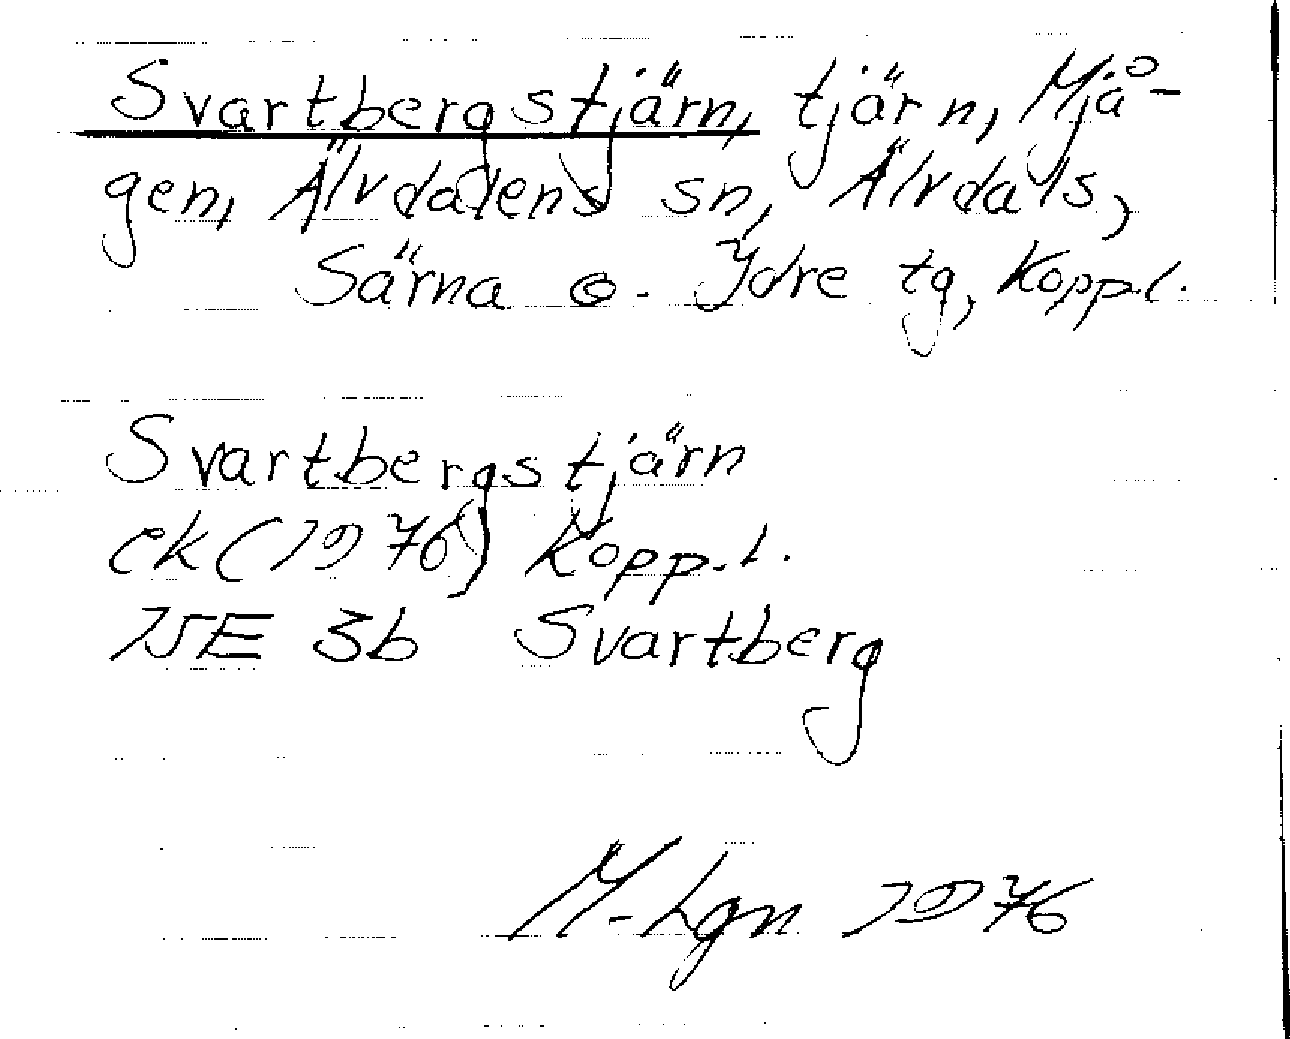 Svartbergstjärn, tjärn, Mjå-
gen, Älvdalens sn, Älvdals,
Särna o. Idre tg, Kopp.l.
Svartbergstjärn
ek (1976) Kopp.l.
15E 3b Svartberg
M-Lgn 1976